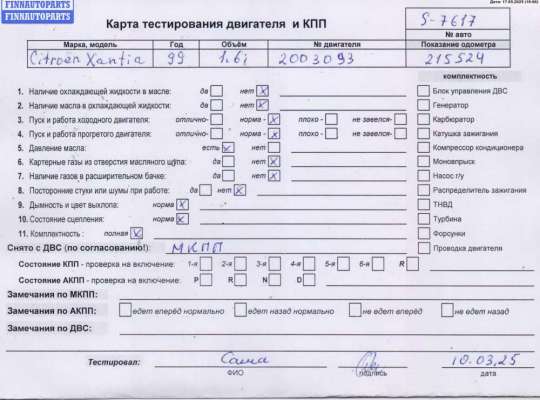 FINNAUTOPARTS
FINNAUTOPARTS
Дата: 17.05.2025
Карта тестирования двигателя и КПП
S-7617
№ авто
Марка, модель Год Объём № двигателя Показание одометра
Citroen Xantia 99 1.6i 2003093 215524
комплектность
1. Наличие охлаждающей жидкости в масле: да нет X Блок управления ДВС
2. Наличие масла в охлаждающей жидкости: да нет X Генератор
3. Пуск и работа холодного двигателя: отлично- норма - X плохо - не завелся- Карбюратор
4. Пуск и работа прогретого двигателя: отлично- норма - X плохо - не завелся- Катушка зажигания
5. Давление масла: есть X нет Компрессор кондиционера
6. Картерные газы из отверстия масляного щупа: да нет X Моновпрыск
7. Наличие газов в расширительном бачке: да нет X Насос г/у
8. Посторонние стуки или шумы при работе: да нет X Распределитель зажигания
9. Дымность и цвет выхлопа: норма X ТНВД
10. Состояние сцепления: норма X Турбина
11. Комплектность : полная X Форсунки
Снято с ДВС (по согласованию!): МКПП Проводка двигателя
Состояние КПП - проверка на включение: 1-я 2-я 3-я 4-я 5-я 6-я R
Состояние АКПП - проверка на включение: P R N D
Замечания по МКПП:
Замечания по АКПП: едет вперёд нормально едет назад нормально не едет вперёд не едет назад
Замечания по ДВС:
Тестировал: Саша 10.03.25
ФИО подпись дата